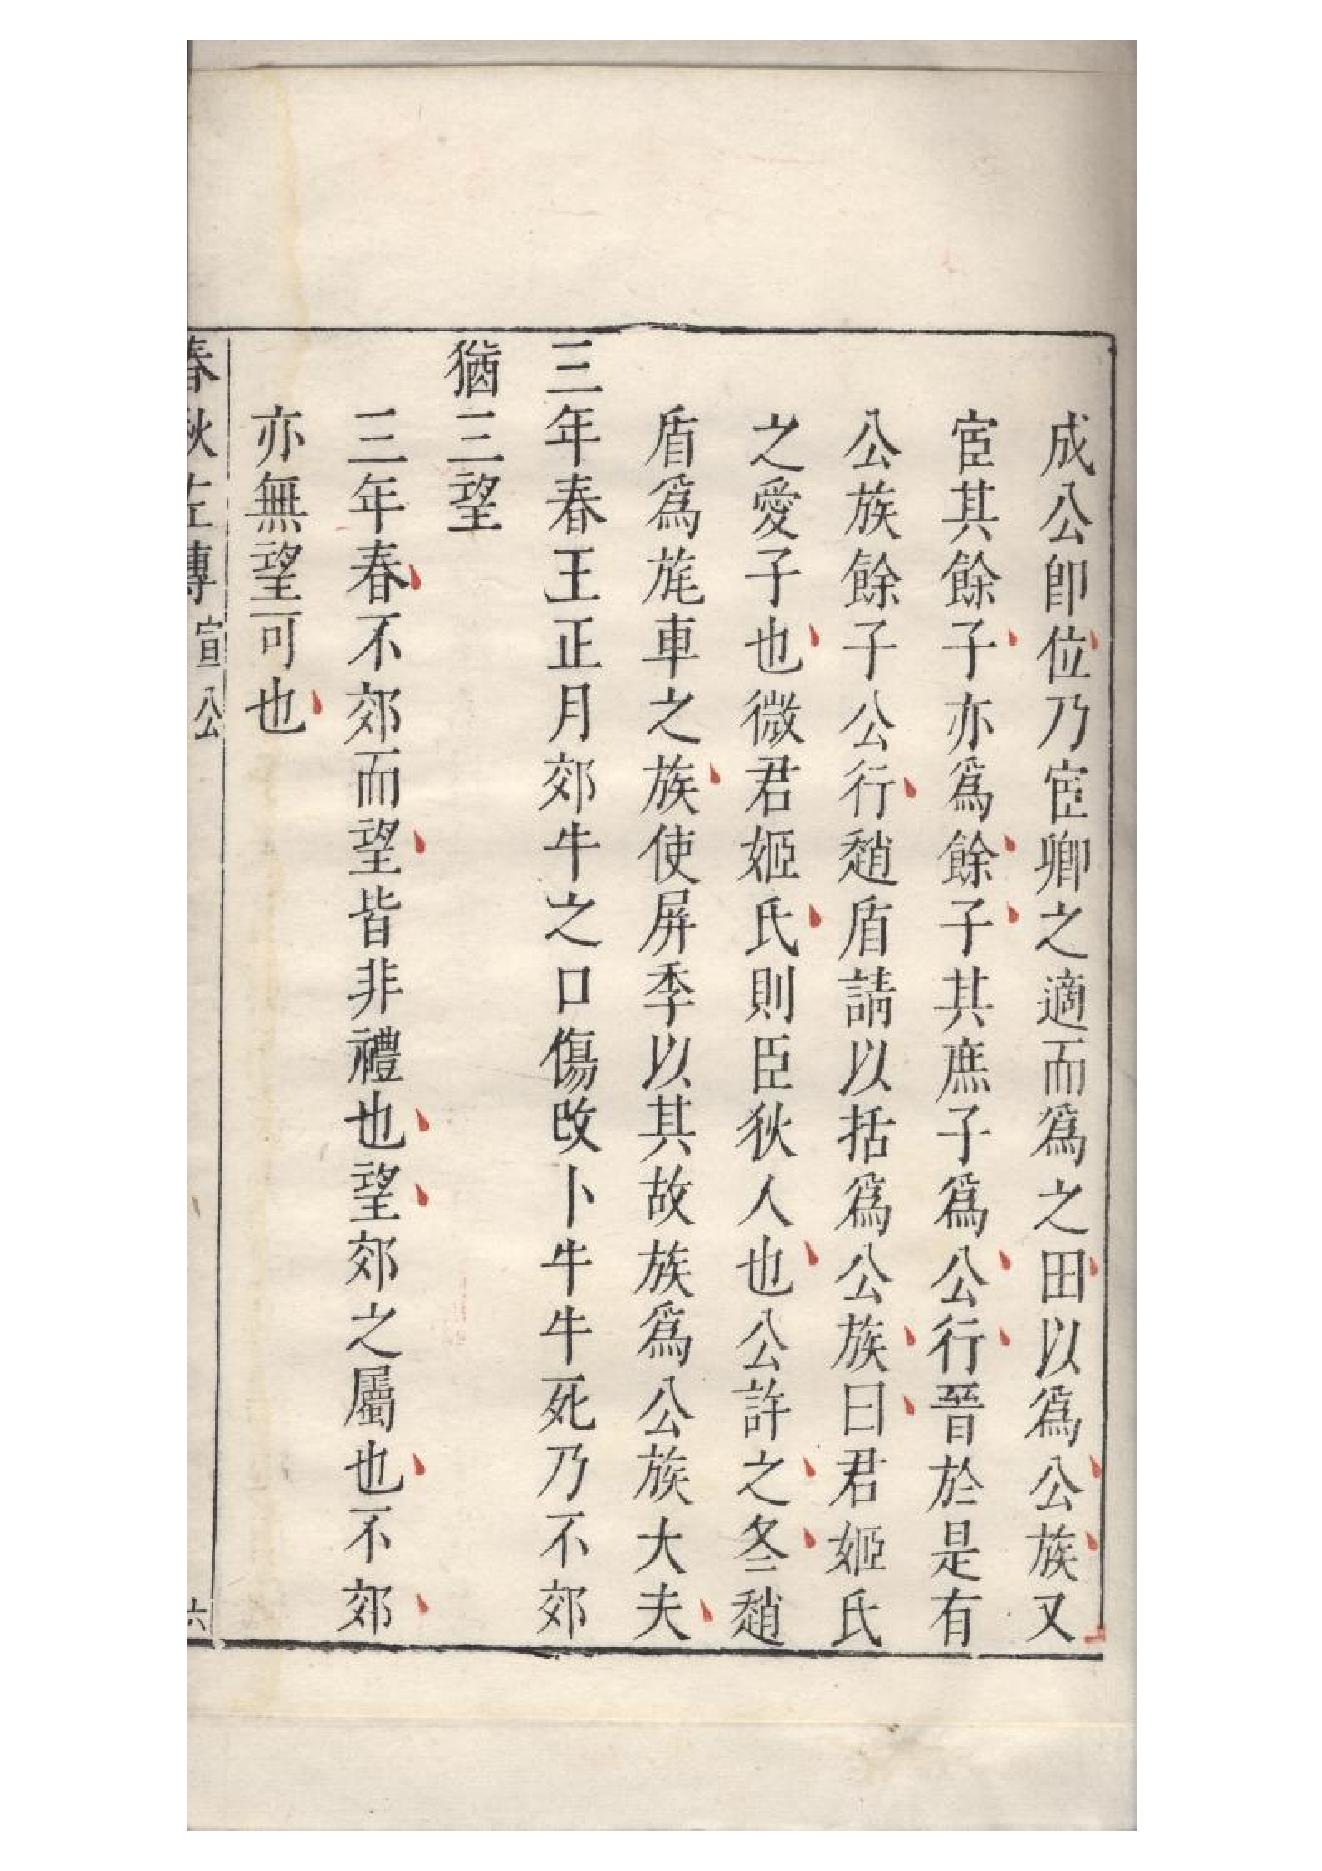 成公卽位乃宦卿之適而爲之田以爲公族又
宦其餘子亦爲餘子其庶子爲公行晉於是有
公族餘子公行趙盾請以括爲公族曰君姬氏
之愛子也微君姬氏則臣狄人也公許之冬趙
盾爲旄車之族使屏季以其故族爲公族大夫
三年春王正月郊牛之口傷改卜牛牛死乃不郊
猶三望
三年春不郊而望皆非禮也望郊之屬也不郊
亦無望可也
春秋左傳 宣公 六